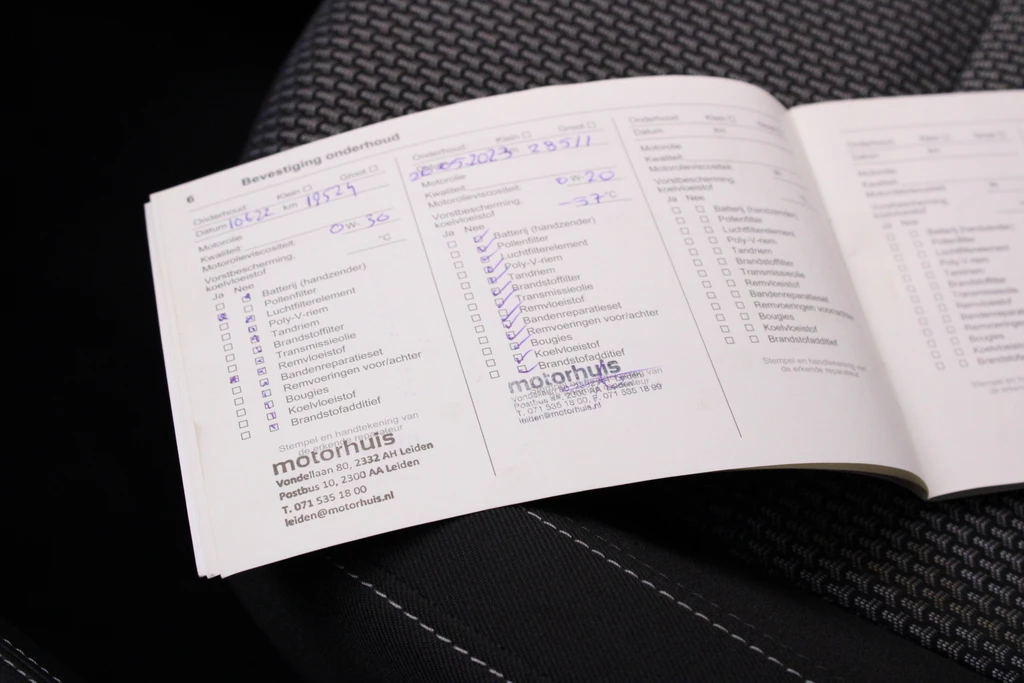 6
Bevestiging onderhoud
Onderhoud: Klein Groot
Datum 10622 km 19524
Motorolie
Kwaliteit
Motorolieviscositeit: 0W-30
Vorstbescherming, °C
koelvloeistof
Ja Nee
Batterij (handzender)
Pollenfilter
Luchtfilterelement
Poly-V-riem
Tandriem
Brandstoffilter
Transmissieolie
Remvloeistof
Bandenreparatieset
Remvoeringen voor/achter
Bougies
Koelvloeistof
Brandstofadditief
Stempel en handtekening van
de erkende reparateur
motorhuis
Vondellaan 80, 2332 AH Leiden
Postbus 10, 2300 AA Leiden
T. 071 535 18 00
leiden@motorhuis.nl
Onderhoud: Klein Groot
05-2023 28511
Motorolie
Kwaliteit
Motorolieviscositeit: 0W-20
Vorstbescherming, -37 °C
koelvloeistof
Ja Nee
Batterij (handzender)
Pollenfilter
Luchtfilterelement
Poly-V-riem
Tandriem
Brandstoffilter
Transmissieolie
Remvloeistof
Bandenreparatieset
Remvoeringen voor/achter
Bougies
Koelvloeistof
Brandstofadditief
motorhuis
Vondellaan 80, 2332 AH Leiden
2300 AA Leiden
T. 071 535 18 00
leiden@motorhuis.nl
Onderhoud: Klein Groot
Datum km
Motorolie
Kwaliteit
Motorolieviscositeit:
Vorstbescherming, °C
koelvloeistof
Ja Nee
Batterij (handzender)
Pollenfilter
Luchtfilterelement
Poly-V-riem
Tandriem
Brandstoffilter
Transmissieolie
Remvloeistof
Bandenreparatieset
Remvoeringen voor/achter
Bougies
Koelvloeistof
Brandstofadditief
Stempel en handtekening van
de erkende reparateur
Onderhoud: Klein Groot
Datum km
Motorolie
Kwaliteit
koelvloeistof
Ja Nee
Batterij (handzender)
Pollenfilter
Luchtfilterelement
Poly-V-riem
Tandriem
Brandstoffilter
Transmissieolie
Remvloeistof
Bougies